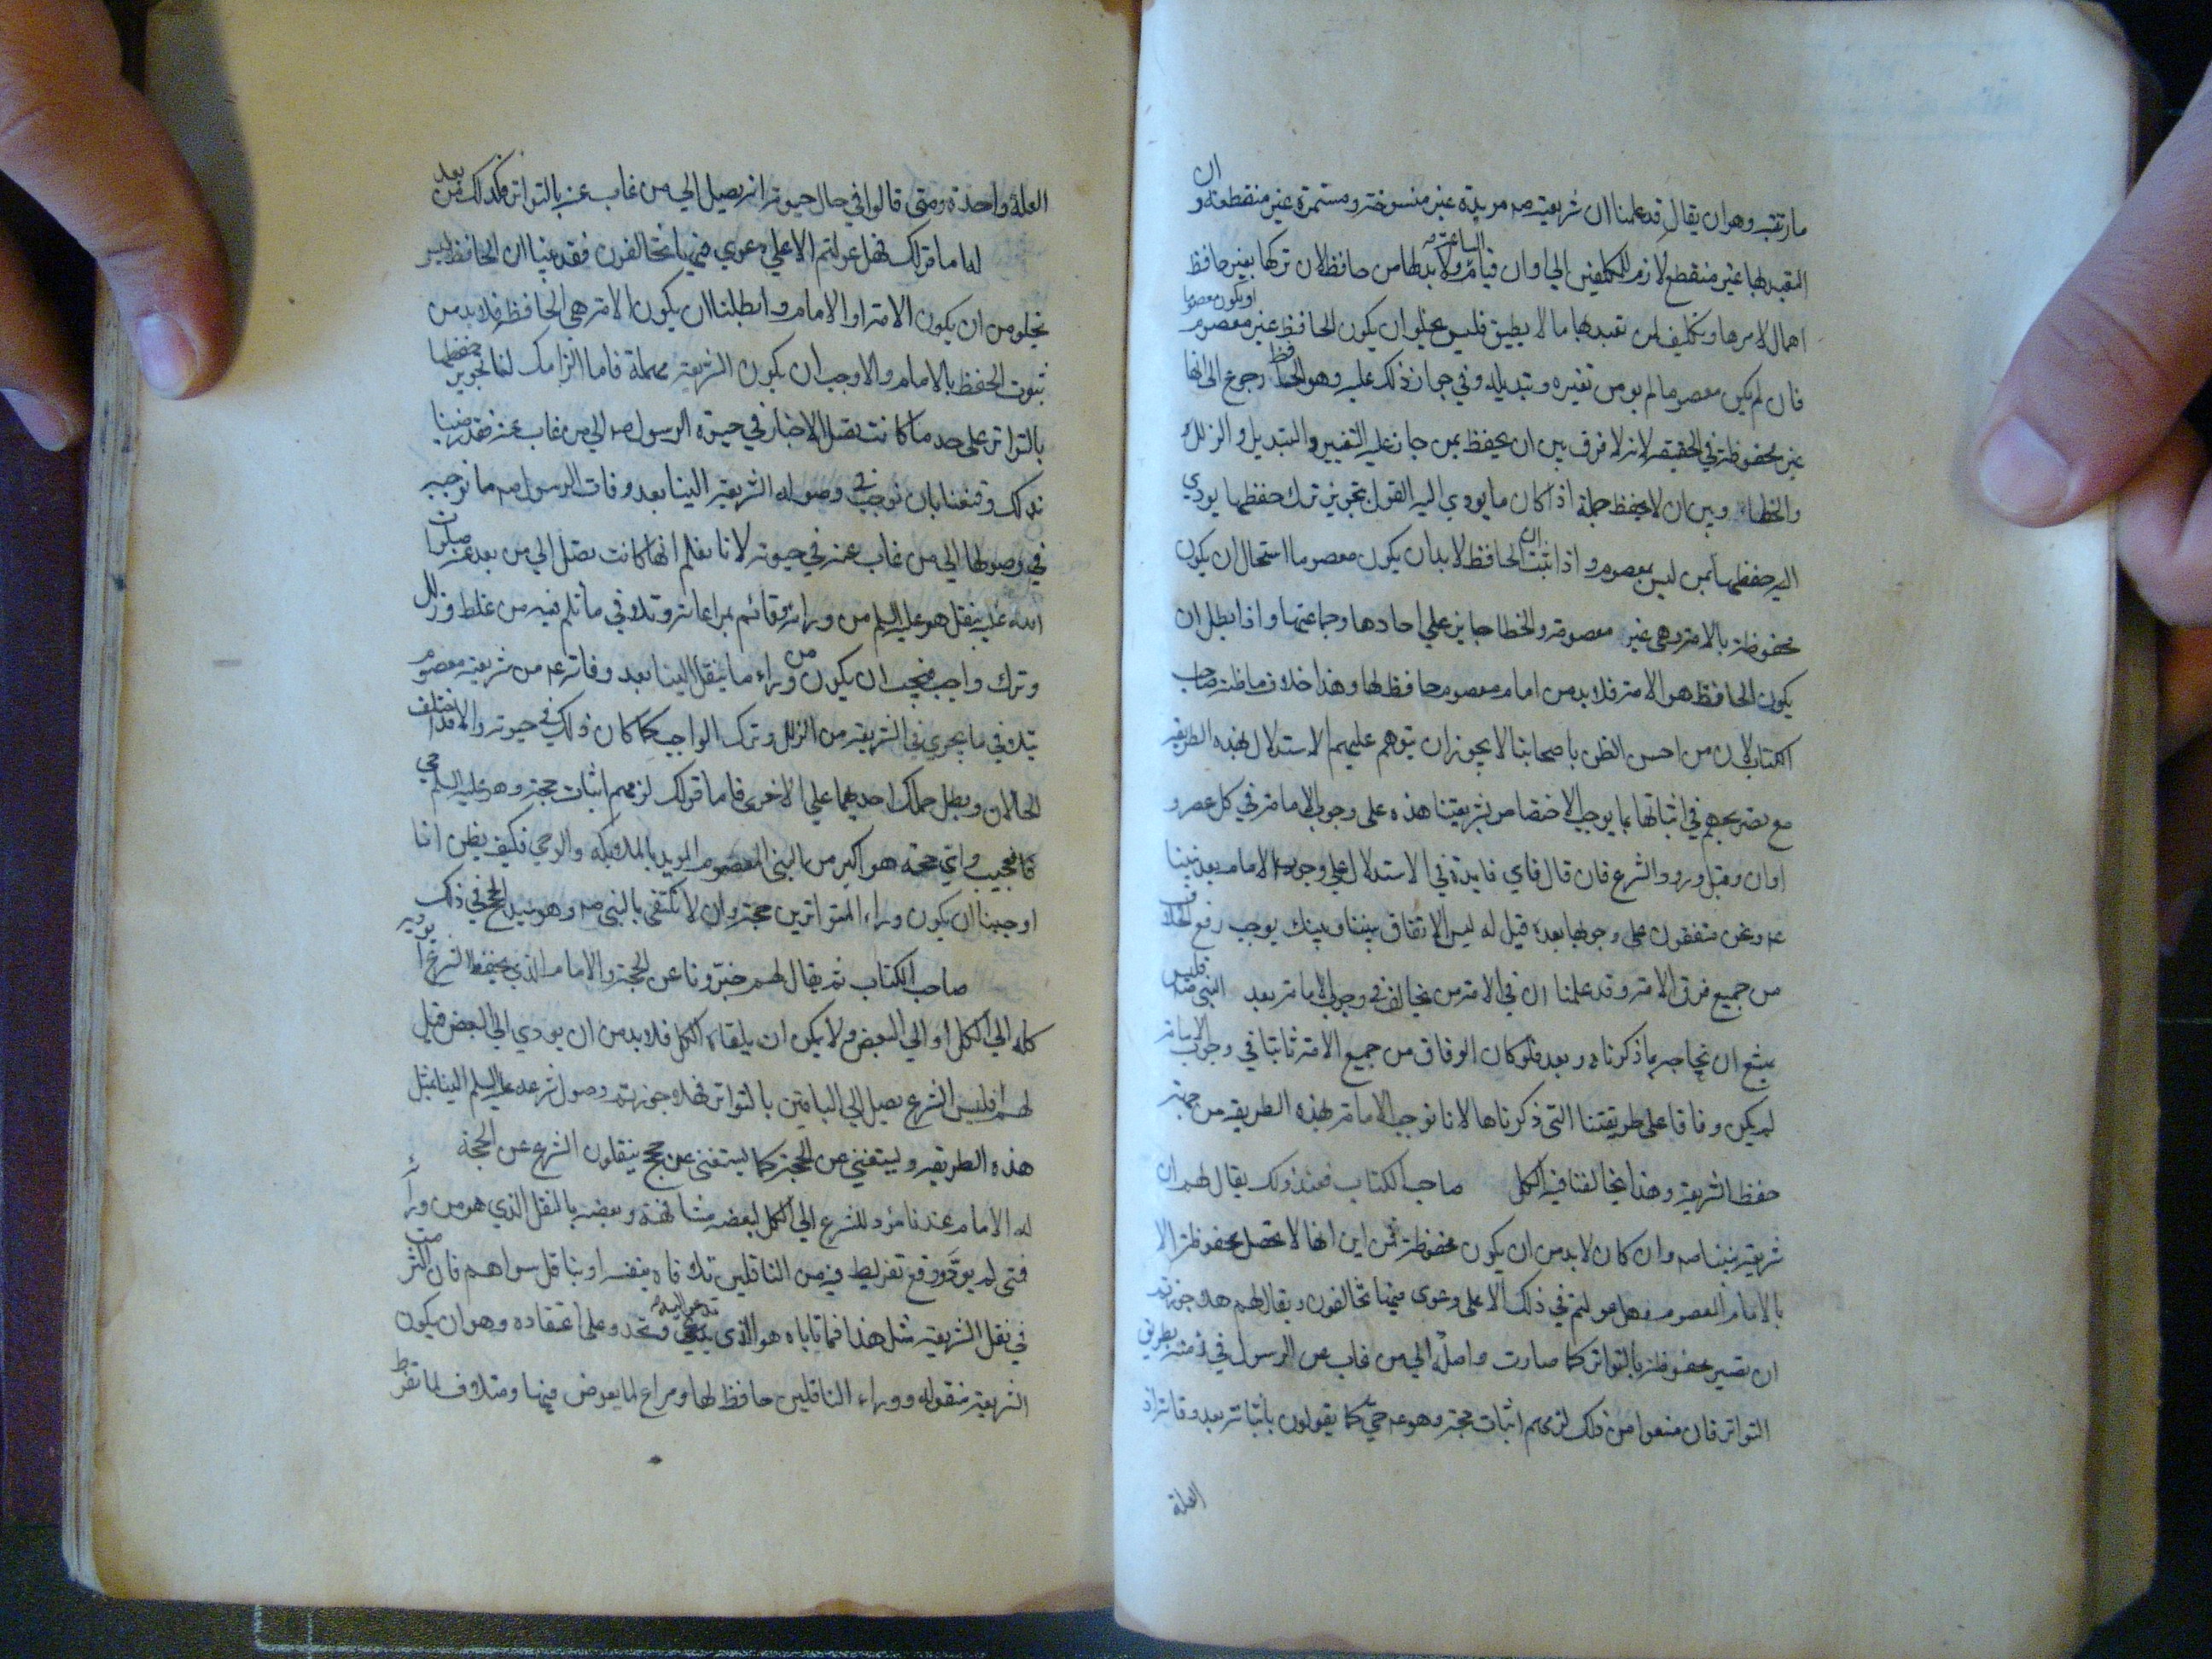 ما رتبته وهو ان يقال قد علمنا ان شريعته صه مويدة غير منسوخة ومستمرة غير منقطعة وان
التعبد لها غير منقطع لازم للمكلفين الي اوان قيام الساعة ولا بد لها من حافظ لان تركها بغير حافظ
اهمال لامرها وتكليف لمن تعبد بها ما لا يطيق فليس يخلو ان يكون الحافظ غير معصوم او يكون معصوما
فان لم يكن معصوما لم يومن تغيره وتبديله وفي جواز ذلك عليه وهو الحافظ رجوع الى انها
غير محفوظة في الحقيقة لانه لا فرق بين ان يحفظ بمن جاز عليه التغيير والتبديل والزلل
والخطاء وبين ان لا يحفظ جملة اذا كان ما يودي اليه القول بتجويز ترك حفظها يودي
اليه حفظها بمن ليس بمعصوم و اذا ثبت ان الحافظ لابد ان يكون معصوما استحال ان يكون
محفوظة بالامة وهي غير معصومة والخطا جايز علي احادها وجماعتها واذا بطل ان
يكون الحافظ هو الامة فلا بد من امام معصوم حافظ لها وهذا خلاف ما ظنه صاحب
الكتاب لان من احسن الظن باصحابنا لا يجوز ان يتوهم عليهم الاستدلال بهذه الطريقة
مع تصريحهم في اثباتها بما يوجب الاختصاص بشريعتنا هذه على وجوب الامامة في كل عصر و
اوان وقبل ورود الشرع فان قال فاي فايدة في الاستدلال علي وجوب الامام بعد نبينا
عه ونحن متفقون على وجوبها بعده قيل له ليس الاتفاق بيننا وبينك يوجب رفع الخلاف
من جميع فرق الامة وقد علمنا ان في الامة من يخالف في وجوب الامامة بعد النبي صه فليس
يمتنع ان نحاجه بما ذكرناه وبعد فلو كان الوفاق من جميع الامة ثابتا في وجوب الامامة
لم يكن وفاقا على طريقتنا التي ذكرناها لانا نوجب الامامة بهذه الطريقة من جهة
حفظ الشريعة وهذا يخالفنا فيه الكل صاحب الكتاب فعند ذلك يقال لهم ان
شريعة نبينا صه وان كان لابد من ان يكون محفوظة فمن اين انها لا تحصل محفوظة الا
بالامام المعصوم وهل عولتم في ذلك الا على دعوى فيها تخالفون ويقال لهم هلا جوزتم
ان تصير محفوظة بالتواتر كما صارت واصلة الي من غاب عن الرسول في زمنه بطريق
التواتر فان منعوا من ذلك لزمهم اثبات حجة وهو عه حيّ كما يقولون باثباته بعد وفاته اذ
العلة
العلة واحدة ومتى قالوا في حال حيوته انه يصل الي من غاب عنه بالتواتر فكذلك من بعد
له اما قولك فهل عولتم الا علي دعوي فيها تخالفون فقد بينا ان الحافظ ليس
يخلو من ان يكون الامة او الامام وابطلنا ان يكون الامة هي الحافظ فلا بد من
ثبوت الحفظ بالامام والا وجب ان يكون الشريعة مهملة فاما الزامك لنا تجويز حفظها
بالتواتر على حد ما كانت تصل الاخبار في حيوة الرسول صه الي من غاب عنه فقد رضينا
بذلك وقنعنا بان نوجب في وصوله الشريعة الينا بعد وفات الرسول صه ما نوجبه
في وصولها الي من غاب عنه في حيوته لانا نعلم انها كانت تصل الي من بعد عنه صلوات
الله عليه بنقل هو عليه السلم من ورائه وقائم بمراعاته وتلافي ما ثلم فيه من غلط و زلل
وترك واجب فيجب ان يكون من وراء ما ينقل الينا بعد وفاته عه من شريعته معصوم
يتلافي ما يجري في الشريعة من الزلل وترك الواجب كما كان ذلك في حيوته والا فقد اختلف
الحالان وبطل حملك احديهما علي الاخرى فاما قولك لزمهم اثبات حجة وهو عليه السلم حي
فانجيب واي حجة هو اكبر من النبي المعصوم المويد بالملائكة والوحي فكيف يظن انا
اوجبنا ان يكون وراء المتواترين حجة وان لا نكتفي بالنبي صه وهو سيد الحجج في ذلك
صاحب الكتاب ثم يقال لهم خبرّونا عن الحجة والامام الذي يحفظ الشرع ايوديه
كله الي الكل او الي البعض ولا يمكن ان يلقاه الكل فلا بد من ان يودي الي البعض قيل
لهم افليس الشرع يصل الي الباقين بالتواتر فهلا جوزتم وصول شرعه عليه السلم الينا بمثل
هذه الطريقة ويستغني عن الحجة كما يستغنى عن حجج ينقلون الشرع عن الحجة
له الامام عندنا مؤد للشرع الي الكل لبعضه مشافهة وبعضه بالنقل الذي هو من ورائه
فمتى لم يودّ ووقع تفريط فيه من الناقلين تلافاه بنفسه او بناقل سواهم فان اكثرت
في نقل الشريعة مثل هذا فما تاباه هو الذي تدعو اليه وتحدو على اعتقاده وهو ان يكون
الشريعة منقولة ووراء الناقلين حافظ لها ومراع لما يعرض فيها ومتلاف لما تفرط